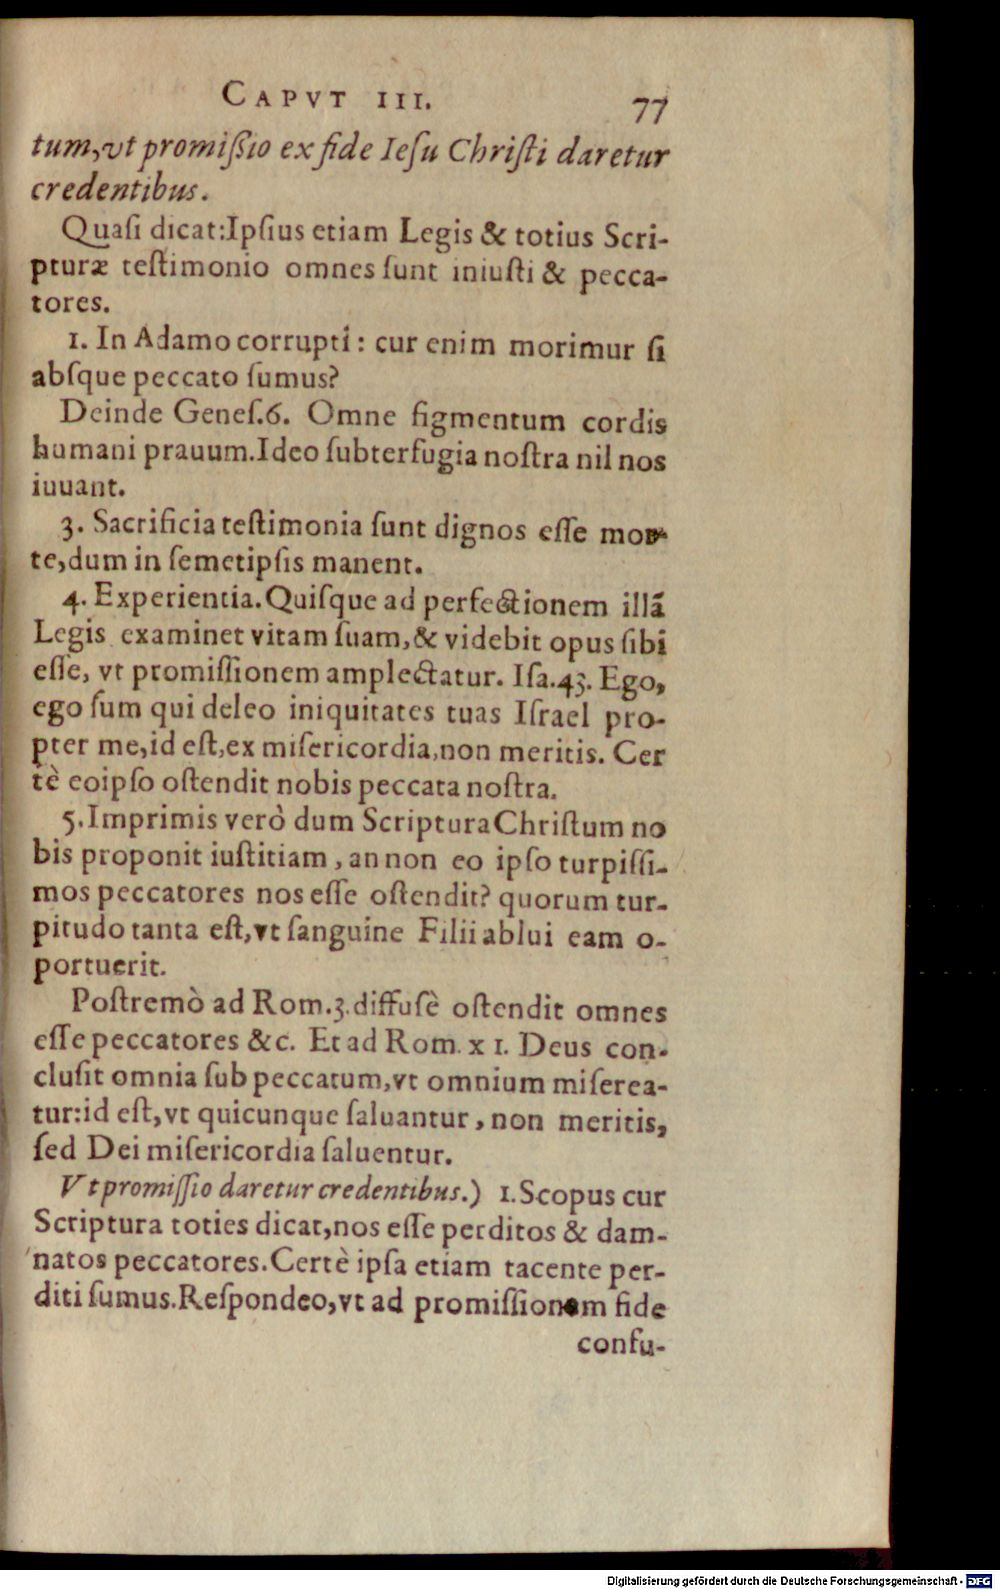 CAPVT III. 77
tum,vt promißio ex fide Ieſu Chriſti daretur
credentibus.
Quaſi dicat:Ipſius etiam Legis & totius Scri-
pturæ teſtimonio omnes ſunt iniuſti & pecca-
tores.
1. In Adamo corrupti : cur enim morimur ſi
abſque peccato ſumus?
Deinde Geneſ.6. Omne figmentum cordis
humani prauum.Ideo ſubterfugia noſtra nil nos
iuuant.
3. Sacrificia teſtimonia ſunt dignos eſſe mor-
te,dum in ſemetipſis manent.
4. Experientia.Quiſque ad perfectionem illã
Legis examinet vitam ſuam,& videbit opus ſibi
eſſe, vt promiſſionem amplectatur. Iſa.43. Ego,
ego ſum qui deleo iniquitates tuas Iſrael pro-
pter me,id eſt,ex miſericordia,non meritis. Cer
tè eoipſo oſtendit nobis peccata noſtra.
5.Imprimis verò dum Scriptura Chriſtum no
bis proponit iuſtitiam , an non eo ipſo turpiſſi-
mos peccatores nos eſſe oſtendit? quorum tur-
pitudo tanta eſt,vt ſanguine Filii ablui eam o-
portuerit.
Poſtremò ad Rom.3.diffuſè oſtendit omnes
eſſe peccatores &c. Et ad Rom. XI. Deus con-
cluſit omnia ſub peccatum,vt omnium miſerea-
tur:id eſt,vt quicunque ſaluantur , non meritis,
ſed Dei miſericordia ſaluentur.
Vt promiſſio daretur credentibus.) 1.Scopus cur
Scriptura toties dicat,nos eſſe perditos & dam-
natos peccatores.Certè ipſa etiam tacente per-
diti ſumus.Reſpondeo,vt ad promiſſionem fide
confu-
Digitalisierung gefördert durch die Deutsche Forschungsgemeinschaft - DFG